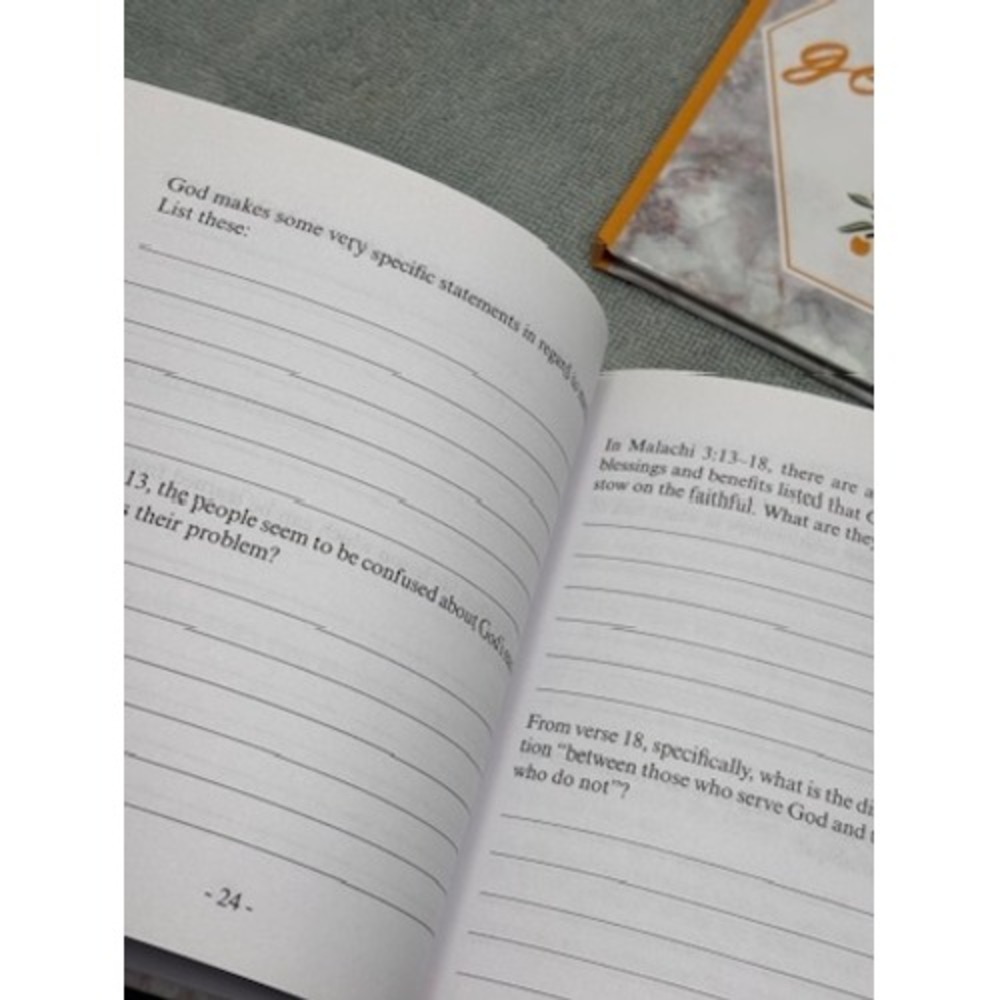 God makes some very specific statements in regard to
List these:
13, the people seem to be confused about God's
their problem?
- 24 -
In Malachi 3:13–18, there are
blessings and benefits listed that
stow on the faithful. What are
From verse 18, specifically, what is the
tion “between those who serve God and
who do not”?